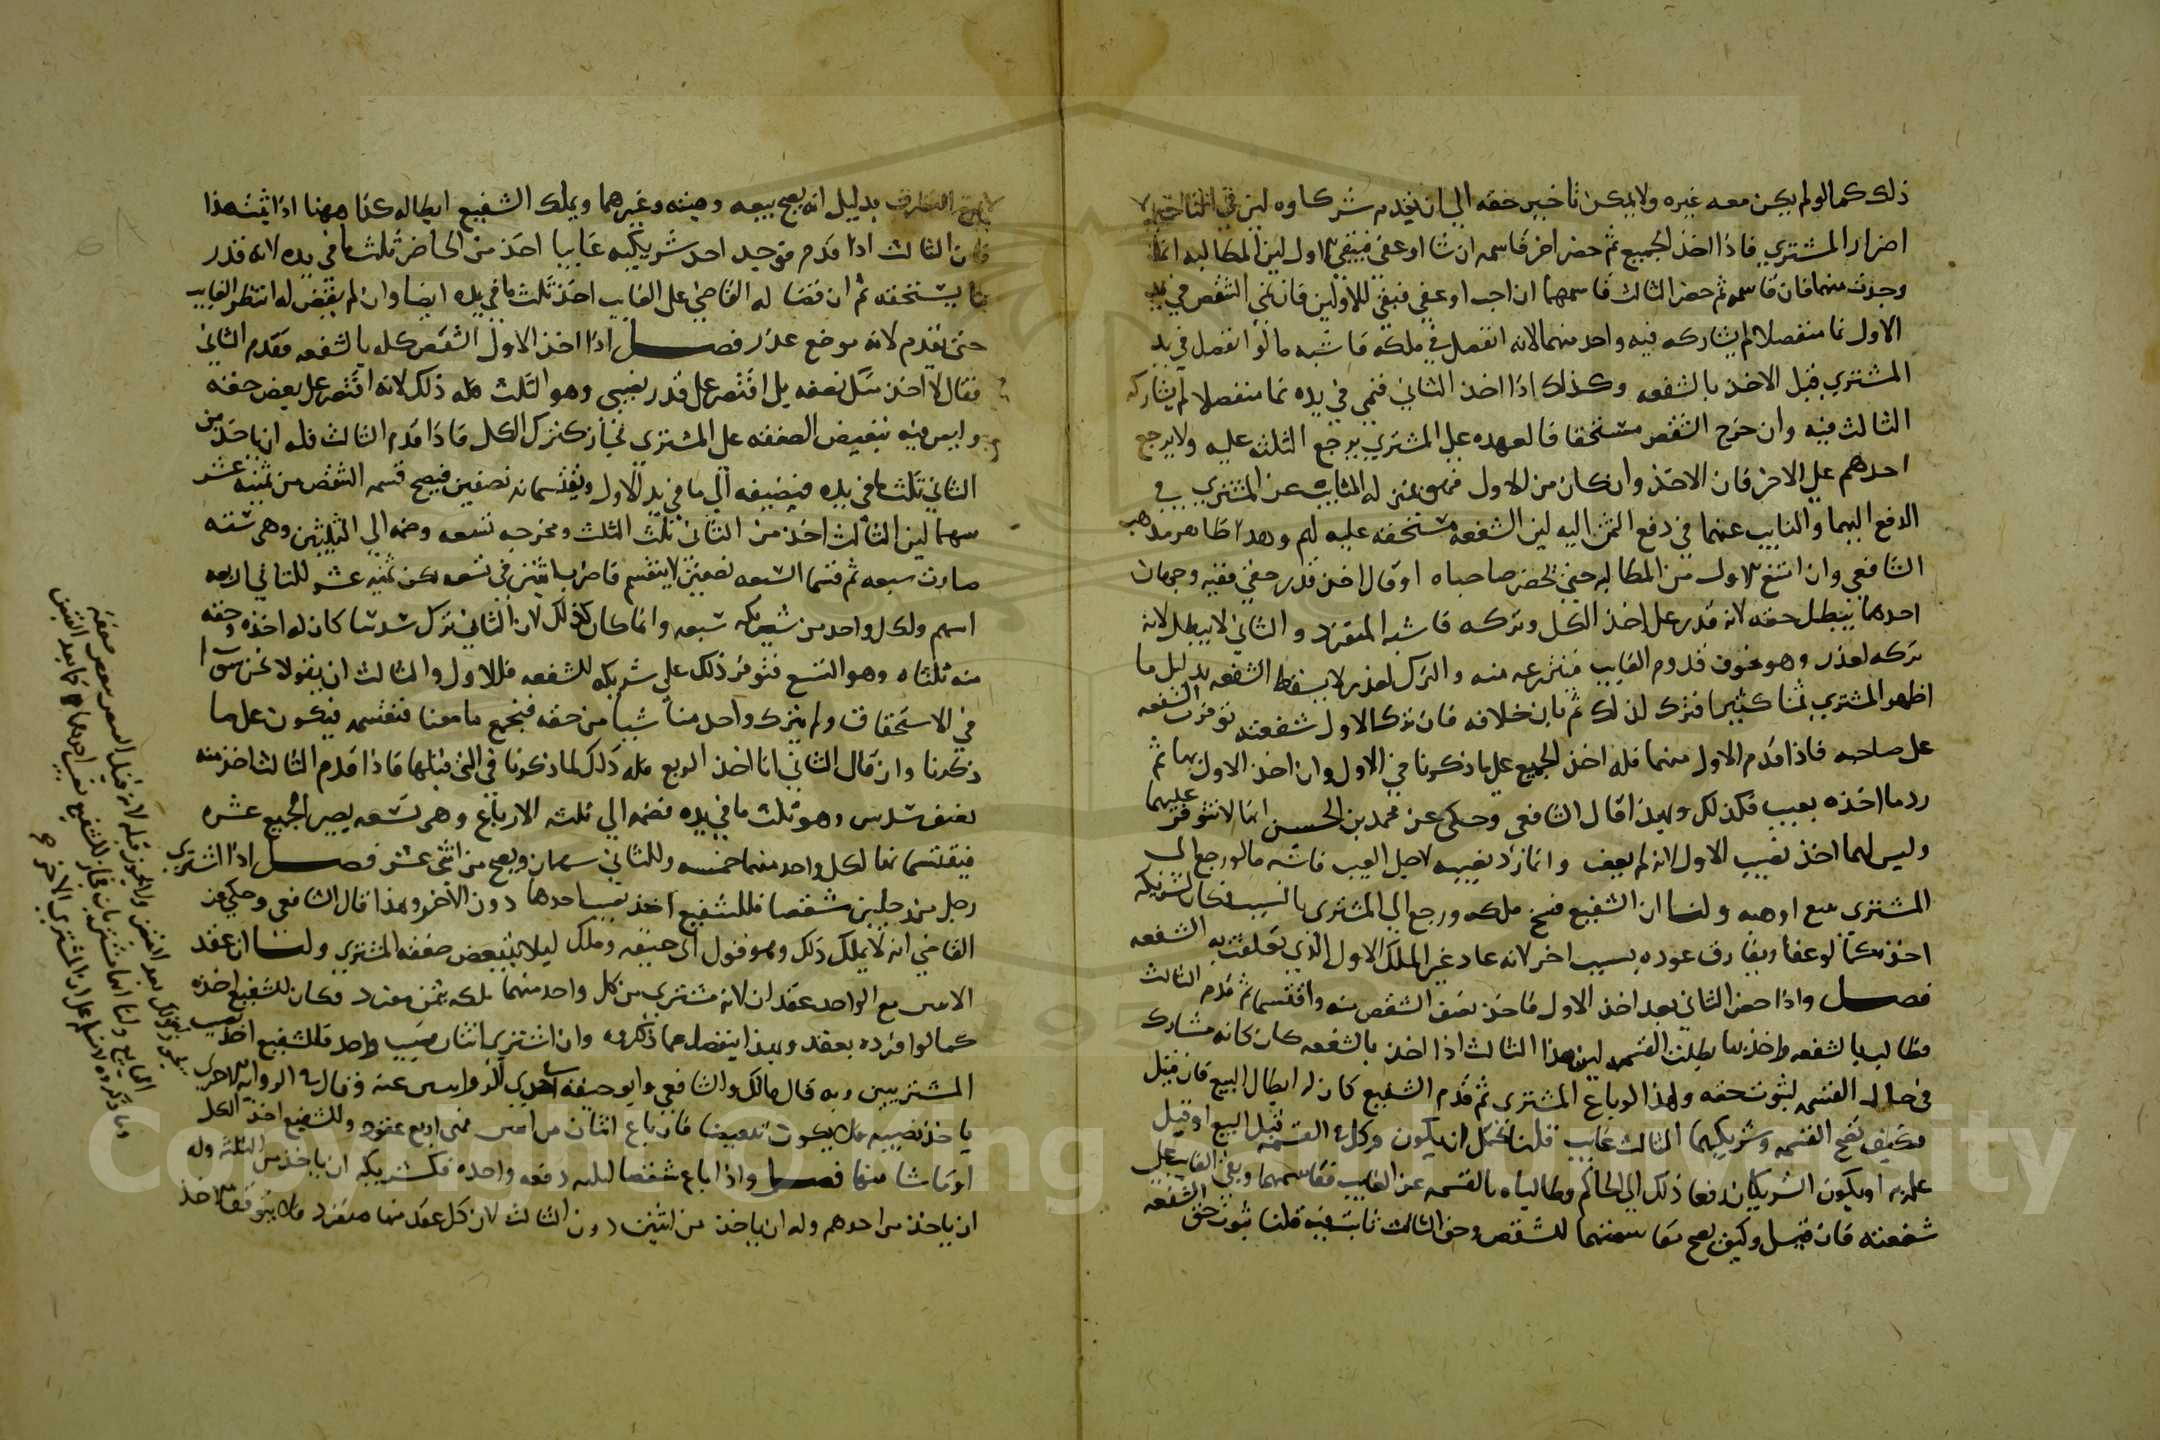 ذلك كما لو لم يكن معه غيره ولا يمكن تاخير حقه الي ان يقدم شركاوه لين في التاخير
اضرار المشتري فاذا اخذ الجميع ثم حضر اخر قاسمه ان شا او عفي فيبقي للاول لين المطالبه انما
وجدت منهما فان قاسمه ثم حضر الثالث قاسمهما ان احب او عفي فيبقي للاولين فان نمي الشقص في يد
الاول نما منفصلا لم يشاركه فيه واحد منهما لانه انفصل في ملكه فاشبه ما لو انفصل في يد
المشتري قبل الاخذ بالشفعه وكذلك اذا اخذ الثاني فنمي في يده نما منفصلا لم يشاركه
الثالث فيه وان خرج الشقص مستحقا فالعهده علي المشتري يرجع الثلثه عليه ولا يرجع
احدهم علي الاخر فان الاخذ وان كان من الاول فهو بمنزله النايب عن المشتري في
الدفع اليهما والنايب عنهما في دفع الثمن اليه لين الشفعه مستحقه عليه لهم وهذا ظاهر مذهب
الشافعي وان امتنع الاول من المطالبه حتي يحضر صاحباه او قال اخذ قدر حقي ففيه وجهان
احدهما يبطل حقه لانه قدر علي اخذ الكل وتركه فاشبه المنفرد والثاني لا يبطل لانه
تركه لعذر وهو خوف قدوم الغايب فينتزعه منه والترك لعذر لا يسقط الشفعه بدليل ما
اظهر المشتري ثمنا كثيرا فترك لذلك ثم بان خلافه فان ترك الاول شفعته توفرت الشفعه
علي صاحبه فاذا قدم الاول منهما فله اخذ الجميع علي ما ذكرنا في الاول وان اخذ الاول بها ثم
رد ما اخذه بعيب فكذلك وبهذا قال الشافعي وحكي عن محمد بن الحسين انها لا تتوفر عليهما
وليس لهما اخذ نصيب الاول لانه لم يعف وانما رد نصيبه لاجل العيب فاشبه ما لو رجع الي
المشتري ببيع او هبه ولنا ان الشفيع فسخ ملكه ورجع الي المشتري بالسبب فكان لشريكه
اخذه كما لو عفا ويفارق عوده بسبب اخر لانه عاد غير الملك الاول الذي تعلقت به الشفعه
فصل واذا حضر الثاني بعد اخذ الاول فاخذ نصف الشقص منه واقتسما ثم قدم الثالث
فطالب بالشفعه واخذ بها بطلت القسمه لين هذا الثالث اذا اخذ بالشفعه كان كانه مشارك
في حال القسمه لثبوت حقه ولهذا لو باع المشتري ثم قدم الشفيع كان له ابطال البيع فان قيل
فكيف تصح القسمه وشريكهما الثالث غايب قلنا يحتمل ان يكون وكل في القسمه قبل البيع او قبل
علمه او يكون الشريكان دفعا ذلك الي الحاكم وطالباه بالقسمه عن الغايب فقاسمهما وبقي الغايب علي
شفعته فان قيل وكيف يصح مقاسمتهما للشقص وحق الثالث ثابت فيه قلنا ثبوت حق الشفعه
لا يمنع التصرف بدليل انه يصح بيعه وهبته وغيرهما ويملك الشفيع ابطاله كذا ههنا اذا ثبت هذا
فان الثالث اذا قدم فوجد احد شريكيه غايبا اخذ من الحاضر ثلث ما في يده لانه قدر
ما يستحقه ثم ان قضا له القاضي علي الغايب اخذ ثلث ما في يده ايضا وان لم يقض له انتظر الغايب
حتي يقدم لانه موضع عذر فصل اذا اخذ الاول الشقص كله بالشفعه فقدم الثاني
فقال لا اخذ منك نصفه بل اقتصر علي قدر نصيبي وهو الثلث فله ذلك لانه اقتصر علي بعض حقه
وليس فيه تبعيض الصفقه علي المشتري فجاز كترك الكل فاذا قدم الثالث فله ان ياخذ من
الثاني ثلث ما في يده فيضيفه الي ما في يد الاول ويقتسمانه نصفين فيصح قسمه الشقص من ثمنيه عشر
سهما لين الثالث اخذ من الثاني ثلث الثلث ومخرجه تسعه وضمه الي الثلثين وهي سته
صارت سبعه ثم قسما السبعه نصفين لا ينقسم فاضرب اثنين في تسعه يكن ثمنيه عشر للثاني اربعه
اسهم ولكل واحد من شريكيه سبعه وانما كان كذلك لان الثاني ترك سدسا كان له اخذه وحقه
منه ثلثاه وهو التسع فتوفر ذلك علي شريكه للشفعه فللاول والثالث ان يقولا نحن سوا
في الاستحقاق ولم يترك واحد منا شيا من حقه فنجمع ما معنا فنقتسمه فيكون علي ما
ذكرنا وان قال الثاني انا اخذ الربع فله ذلك لما ذكرنا في التي قبلها فاذا قدم الثالث اخذ منه
نصف سدس وهو ثلث ما في يده فضمه الي ثلثه الارباع وهي تسعه يصير الجميع عشره
فيقتسمانها لكل واحد منهما خمسه وللثاني سهمان ويصح من اثني عشر فصل اذا اشتري
رجل من رجلين شقصا فللشفيع اخذ نصيب احدهما دون الاخر وبهذا قال الشافعي وحكي عن
القاضي انه لا يملك ذلك وهو قول ابي حنيفه ومالك ليلا تتبعض صفقه المشتري ولنا ان عقد
الاثنين مع الواحد عقدان لانه مشتري من كل واحد منهما ملكه بثمن مفرد فكان للشفيع اخذه
كما لو افرده بعقد وبهذا ينفصل عما ذكروه وان اشتري اثنان نصيب واحد فللشفيع اخذ نصيب
المشتريين وبه قال مالك والشافعي وابو حنيفه في احدي الروايتين عنه وقال في الروايه الاخري
ياخذ نصيبه فان باع اثنان من اثنين فهي اربع عقود وللشفيع اخذ الكل
او ما شا منها فصل واذا باع شقصا لثلثه دفعه واحده فلشريكه ان ياخذ من الثلثه وله
ان ياخذ من احدهم وله ان ياخذ من اثنين دون الثالث لان كل عقد منها منفرد فلا يتوقف الاخذ